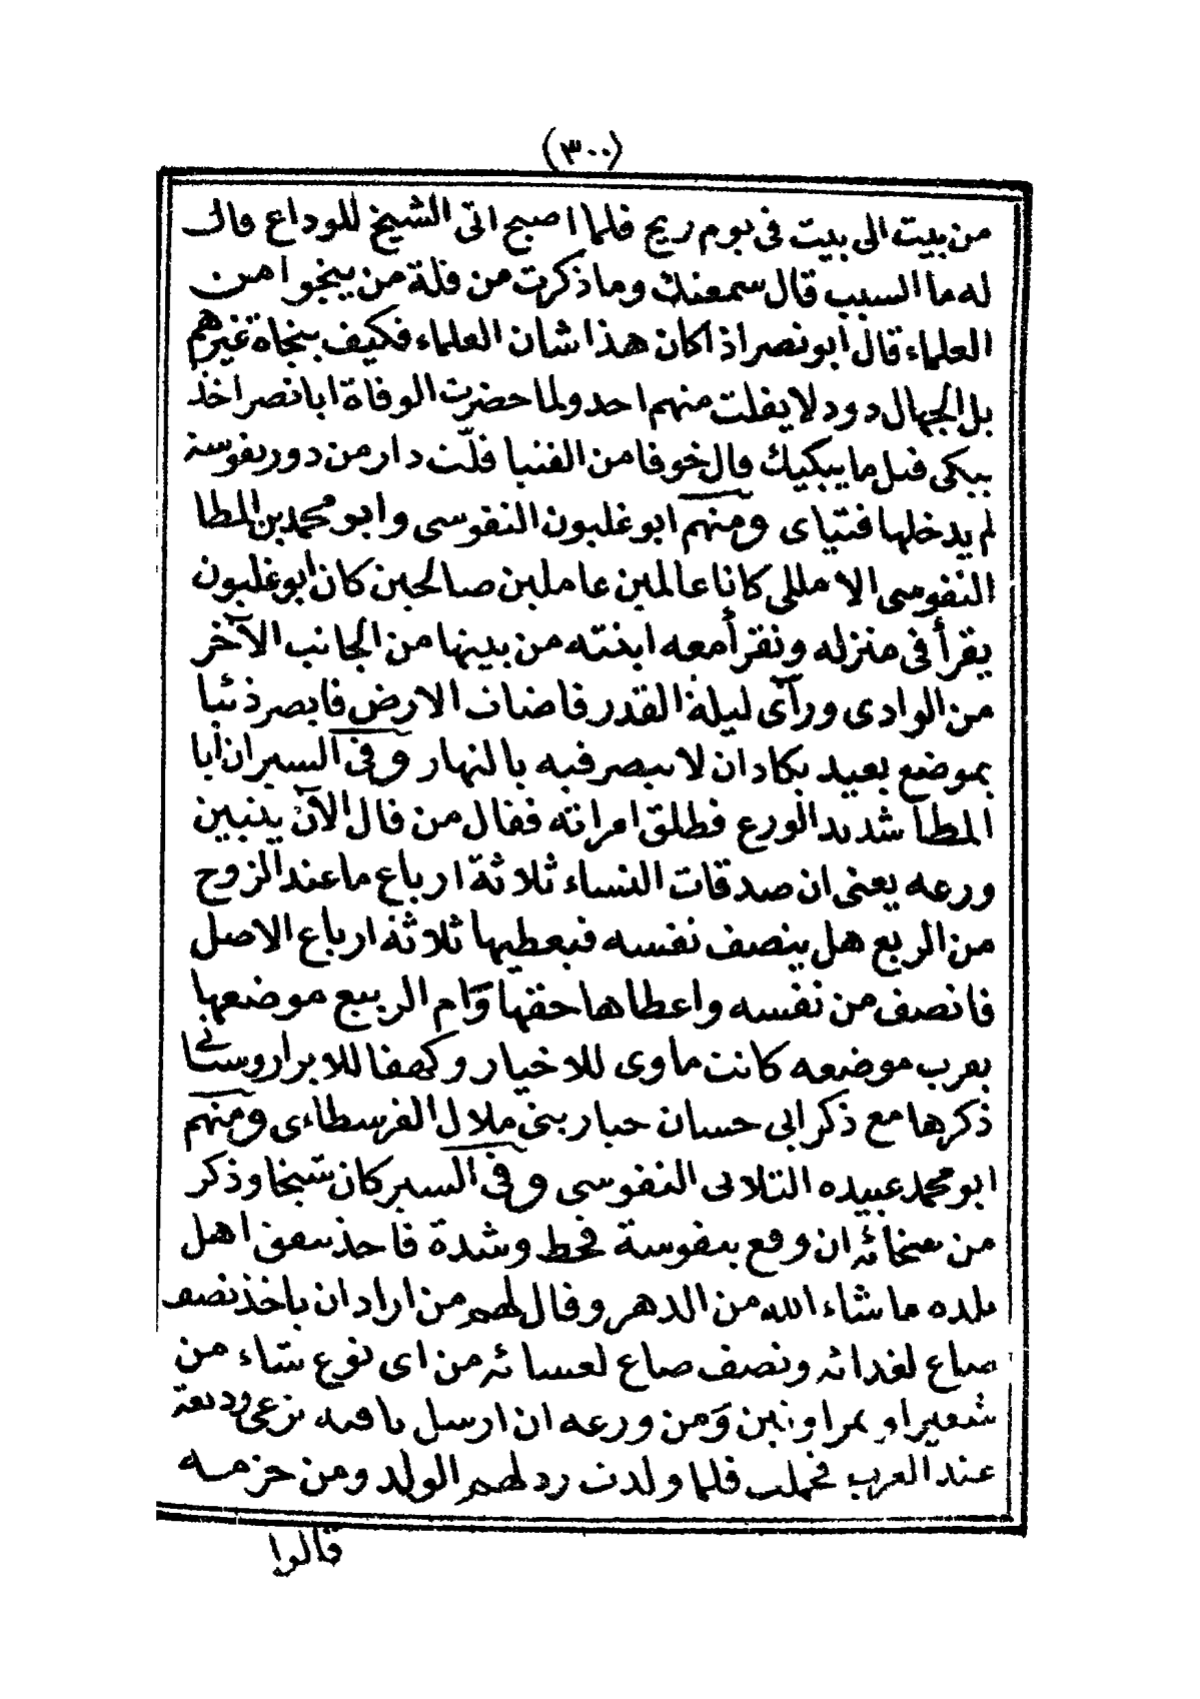 (٣٠٠)
من بيت الى بيت فى يوم ريح فلما اصبح اتى الشيخ للوداع قال
له ما السبب قال سمعتك وما ذكرت من قلة من ينجوا من
العلماء قال ابو نصر اذا كان هذا شان العلماء فكيف بنجاة غيرهم
بل الجهال دود لا يفلت منهم احد ولما حضرت الوفاة ابا نصر اخذ
يبكى قيل ما يبكيك قال خوفا من الفتيا قلّت دار من دور نفوسة
لم يدخلها فتياى ومنهم ابو غلبون النفوسى وابو محمد بن المطا
النفوسى الامللى كانا عالمين عاملين صالحين كان ابو غلبون
يقرأ فى منزله وتقرأ معه ابنته من بيتها من الجانب الآخر
من الوادى ورآى ليلة القدر فاضات الارض فابصر ذئبا
بموضع بعيد يكاد ان لا يبصر فيه بالنهار وفى السير ان أبا
المطا شديد الورع فطلق امراته فقال من قال الآن يتبين
ورعه يعنى ان صدقات النساء ثلاثة ارباع ما عند الزوج
من الربع هل ينصف نفسه فيعطيها ثلاثة ارباع الاصل
فانصف من نفسه واعطاها حقها وَام الربيع موضعها
بقرب موضعه كانت ماوى للاخيار وكهفا للابرار وسياتى
ذكرها مع ذكر ابى حسان حيار بنى ملال الفرسطاءى ومنهم
ابو محمد عبيده التلاتى النفوسى وفى السير كان شيخا وذكر
من سخائه ان وقع بنفوسة قحط وشدة فاخذ ينفق اهل
بلده ما شاء الله من الدهر وقال لهم من اراد ان ياخذ نصف
صاع لغدائه ونصف صاع لعشائه من اى نوع شاء من
شعير او تمر او تين وَمن ورعه ان ارسل ناقته ترعى وديعة
عند العرب فحملت فلما ولدت رد لهم الولد ومن حزمه
قالوا